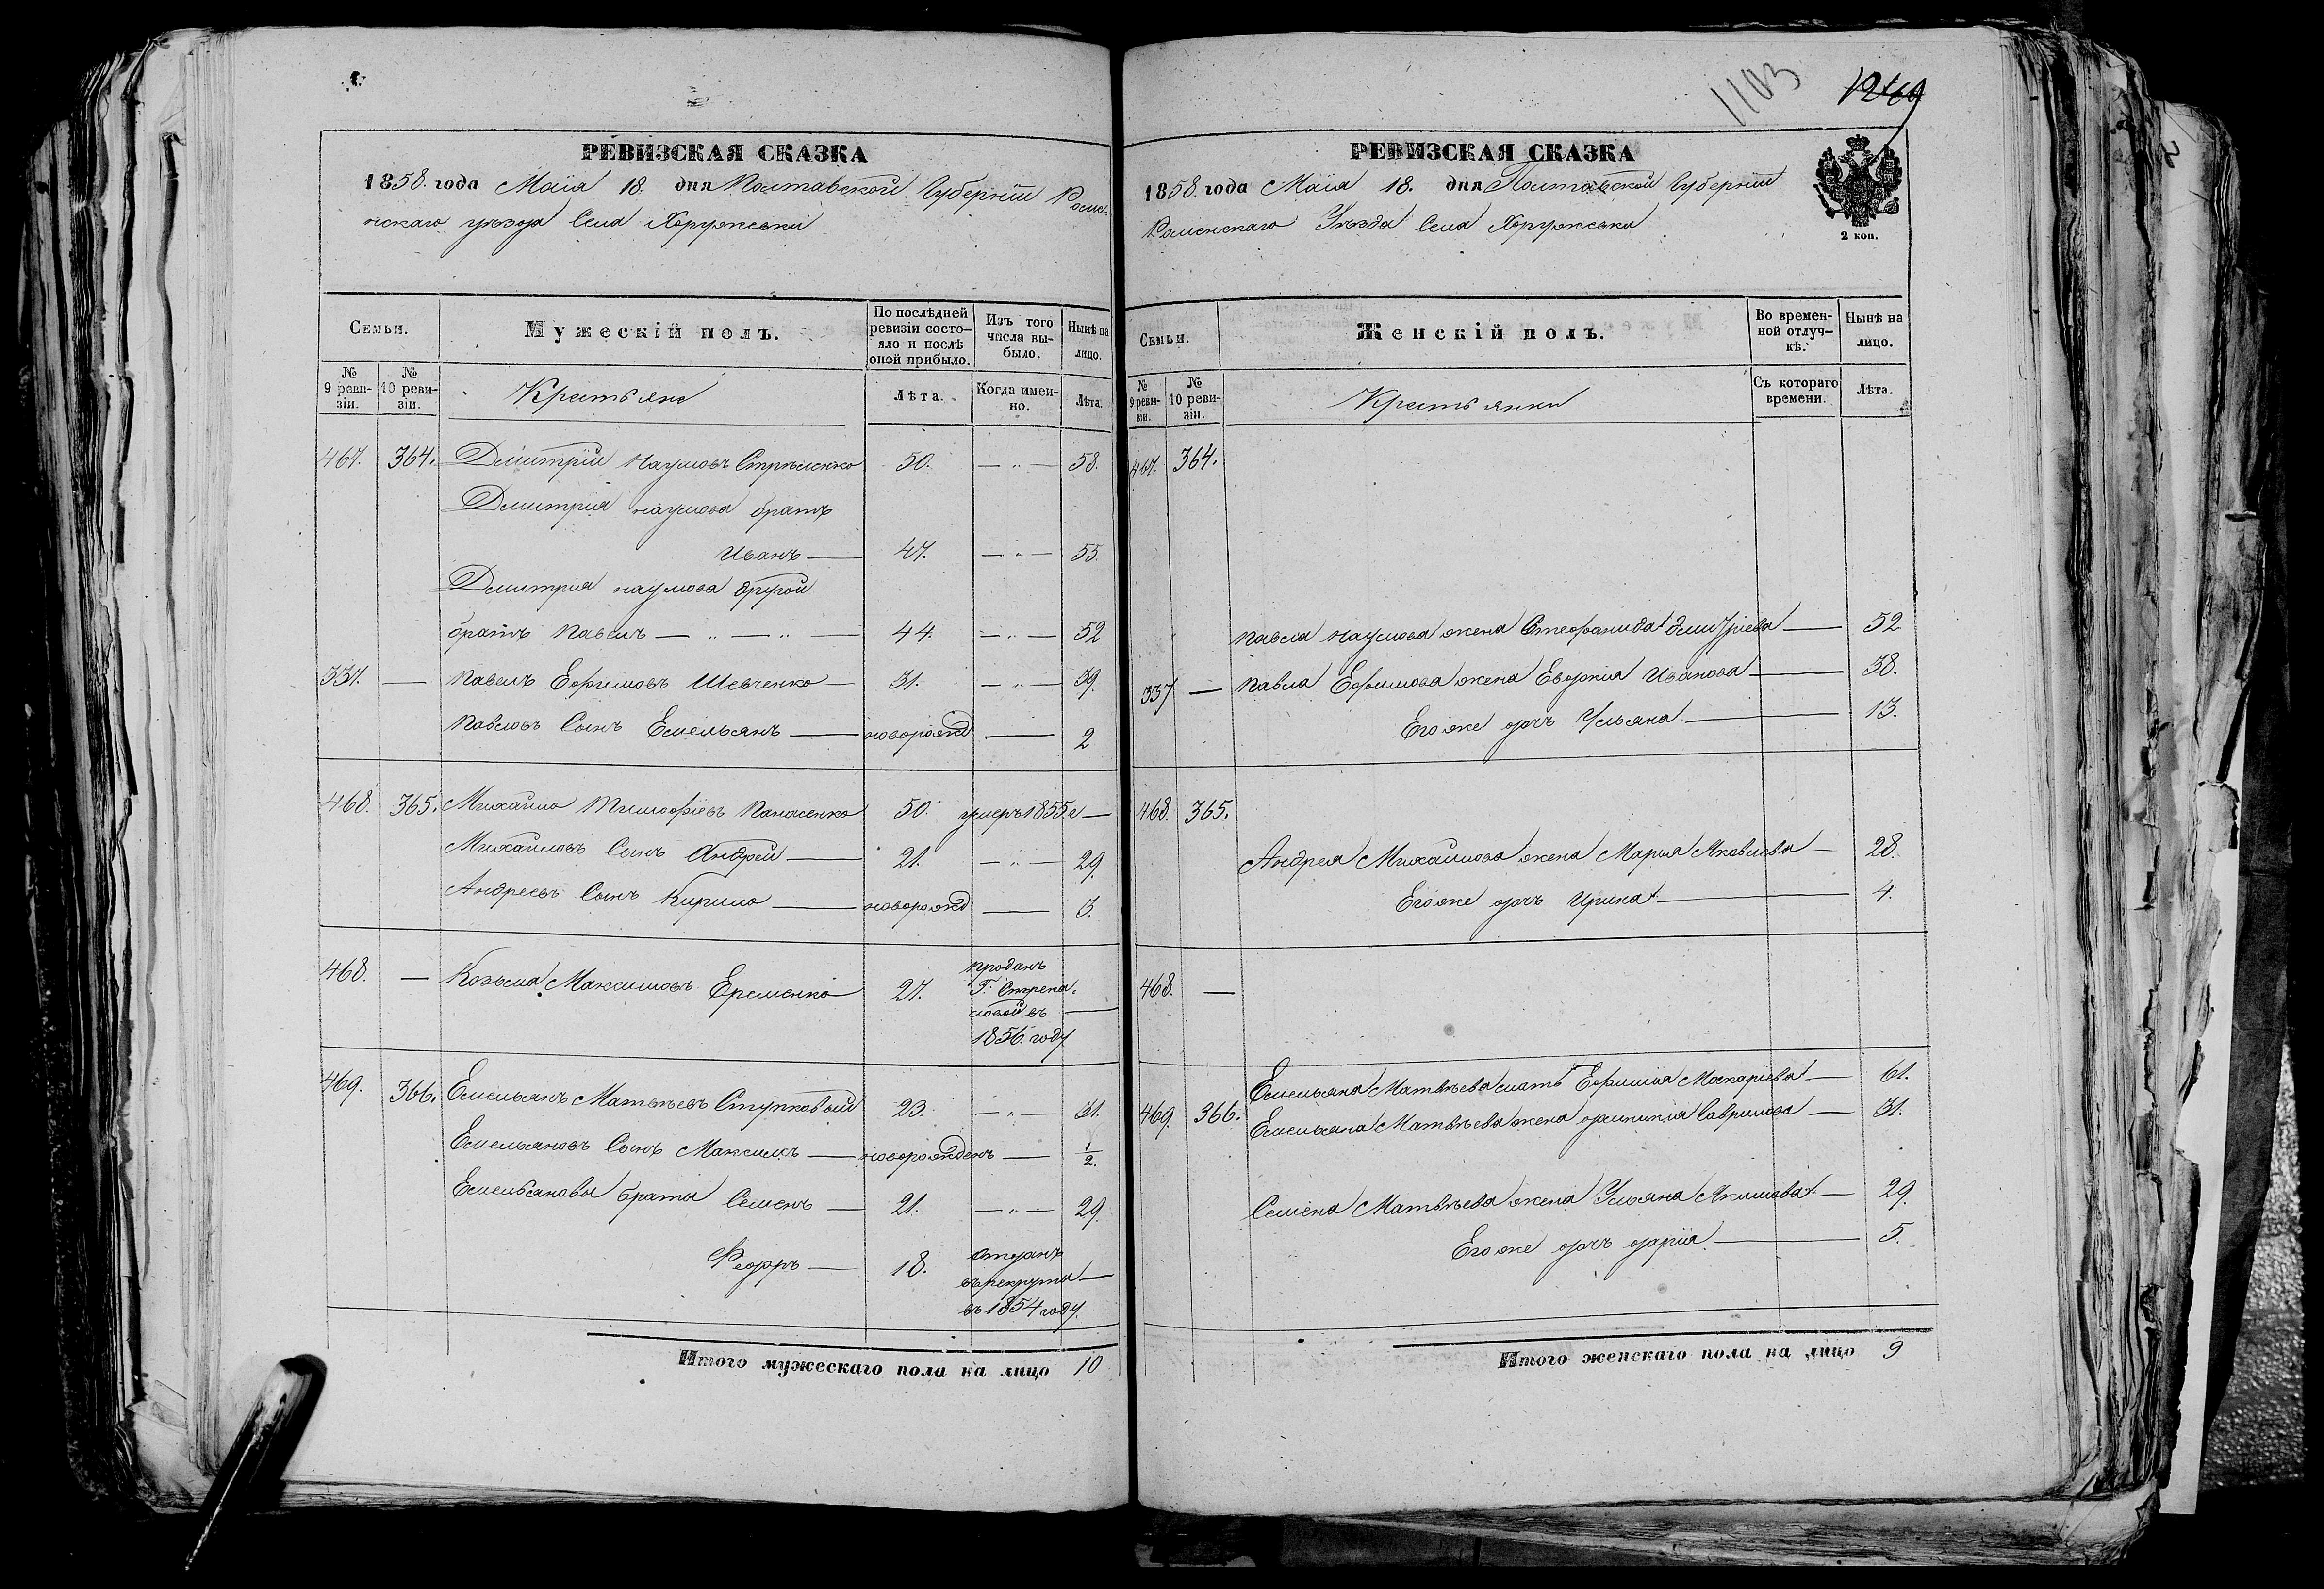 РЕВИЗСКАЯ СКАЗКА
1858. года Маія 18. дня Полтавской Губерніи Роме-
нскаго уѣзда Села Хоружевки
Семьи.
Мужескій полъ.
По послѣдней ревизіи состо-яло и послѣ оной прибыло.
Изъ того числа вы-было.
Нынѣ на лицо.
№ 9 реви-зіи.
№ 10 реви-зіи.
Крестьяне
Лѣта.
Когда имен-но.
Лѣта.
467. 364. Дмитрій Наумовъ Стрѣленко 50. — „ — 58.
Дмитрія Наумова братъ
Иванъ — 47. — „ — 55.
Дмитрія Наумова другой
братъ Павелъ — „ — „ — 44. — „ — 52
337. — Павелъ Ефимовъ Шевченко — 31. — „ — 39.
Павловъ Сынъ Емельянъ — новорожд — 2
468. 365. Михайло Тимофѣевъ Панженко 50. умеръ 1855 г —
Михайловъ Сынъ Андрей — 21. — „ — 29.
Андреевъ Сынъ Кирило — новорожд — 3.
468. — Козьма Максимовъ Еременко 27.
проданъ
Г. Стрека-
ловой въ —
1856. году
469. 366. Емельянъ Матвѣевъ Ступковый 23. — „ — 31.
Емельяновъ Сынъ Максимъ — новорожденъ — 1/2.
Емельяновы браты Семенъ — 21. — „ — 29.
Федоръ — 18.
отданъ
въ рекруты —
въ 1854 году.
Итого мужескаго пола на лицо 10
1103
1269
РЕВИЗСКАЯ СКАЗКА
1858. года Маія 18. дня Полтавской Губерніи
Роменскаго Уѣзда Села Хоружевки
2 коп.
Семьи.
Женскій полъ.
Во времен-ной отлуч-кѣ.
Нынѣ на лицо.
№ 9 реви-зіи.
№ 10 реви-зіи.
Крестьянки
Съ котораго времени.
Лѣта.
467. 364.
Павла Наумова жена Стефанида Дмитріева — 52
337 — Павла Ефимова жена Евдокія Иванова — 38.
Его же дочь Ульяна. — 13.
468. 365.
Андрея Михайлова жена Марья Яковлева — 28.
Его же дочь Ирина — 4.
468. —
Емельяна Матвѣева мать Ефимія Макаріева — 61.
469. 366. Емельяна Матвѣева жена Домникія Гаврилова — 31.
Семена Матвѣева жена Ульяна Якимова — 29.
Его же дочь Дарія — 5.
Итого женскаго пола на лицо 9